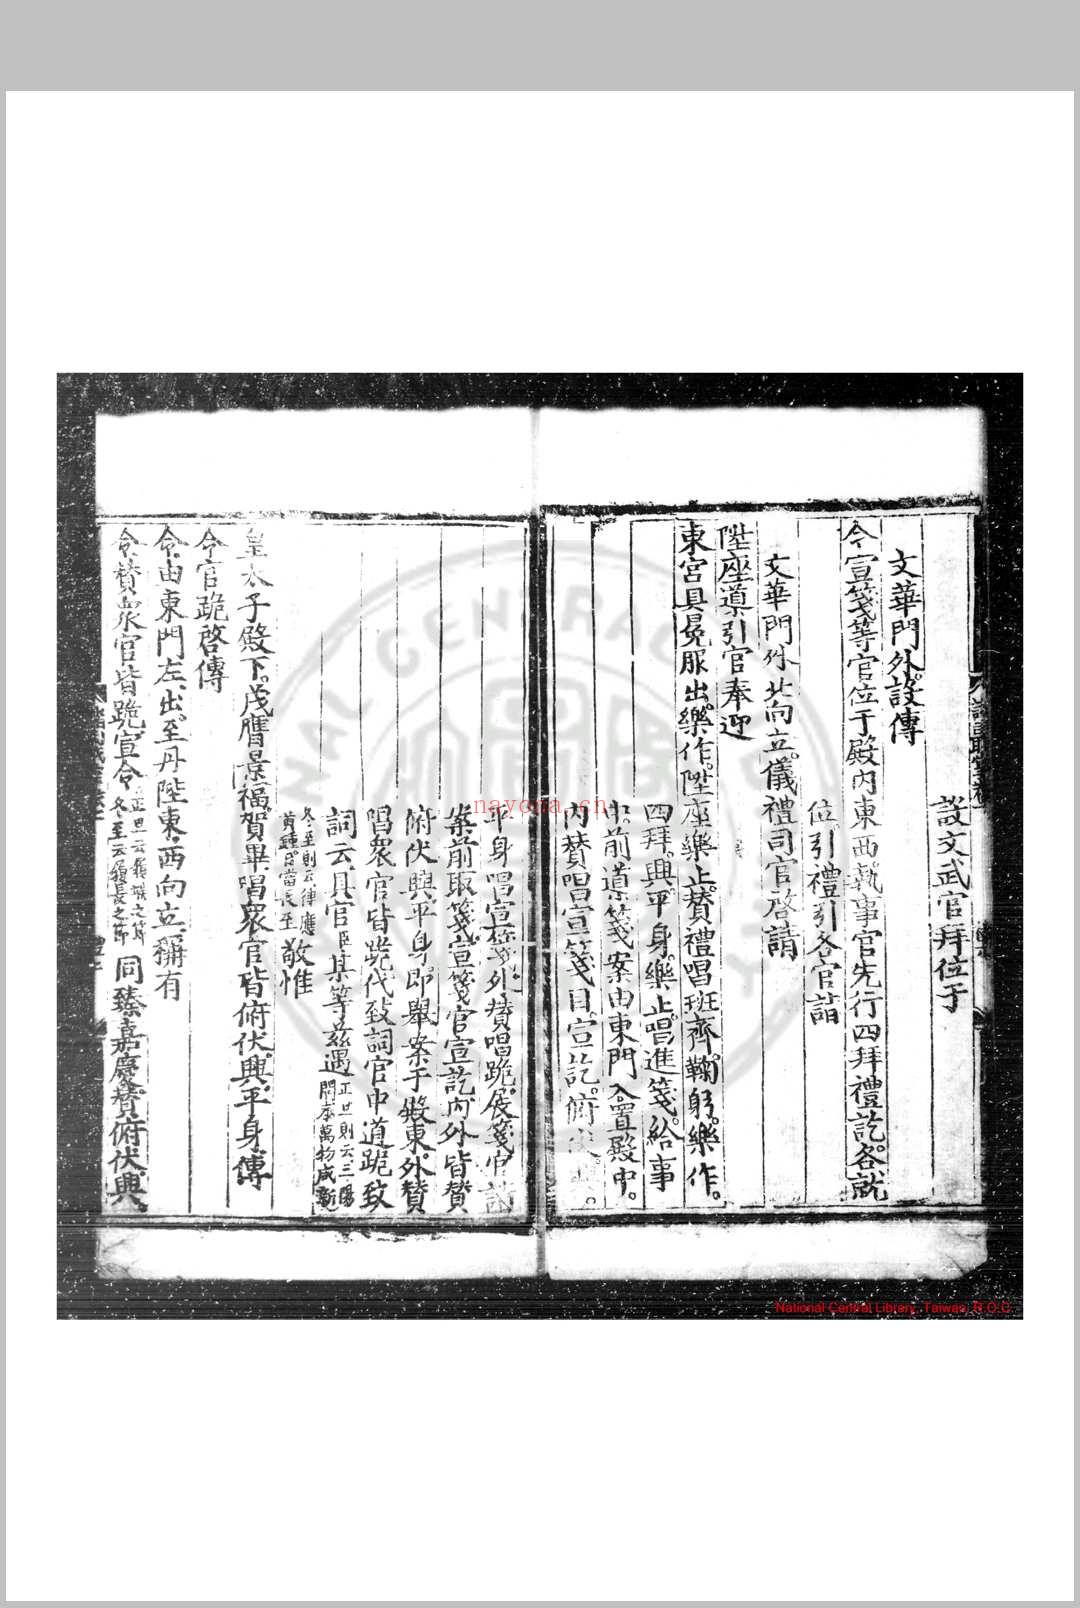 設文武官拜位于
文華門外設傳
令宣箋等官位于殿內東西執事官先行四拜禮訖各就
位引禮引各官詣
文華門外北向立儀禮司官啓請
陞座導引官奉迎
東宮具冕服出樂作陞座樂止贊禮唱班齊鞠躬樂作
四拜興平身樂止唱進箋給事
中前導箋案由東門入置殿中
內贊唱宣箋目宣訖俯
平身唱宣箋外贊唱跪展箋官詣
案前取箋宣箋官宣訖內外皆贊
俯伏興平身即舉案于殿東外贊
唱衆官皆跪代致詞官中道跪致
詞云具官臣某等茲遇正旦則云三陽開泰萬物咸新
冬至則云律應黃鍾日當長至敬惟
皇太子殿下茂膺景福賀畢唱衆官皆俯伏興平身傳
令官跪啓傳
令由東門左出至丹陛東西向立稱有
令贊衆官皆跪宣令正旦云履端之節冬至云履長之節同臻嘉慶贊俯伏興
nayona.cn
National Central Library, Taiwan, R.O.C